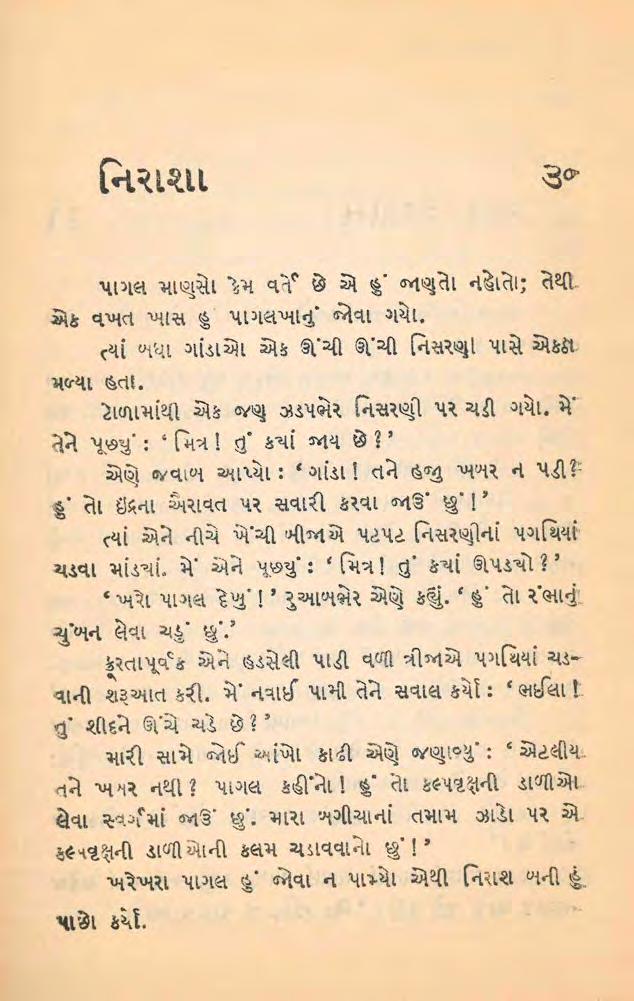 નિરાશા ૩૦
પાગલ માણસો કેમ વર્તે છે એ હું જાણતો નહોતો; તેથી
એક વખત ખાસ હું પાગલખાનું જોવા ગયો.
ત્યાં બધા ગાંડાઓ એક ઊંચી ઊંચી નિસરણી પાસે એકઠા
મળ્યા હતા.
ટોળામાંથી એક જણ ઝડપભેર નિસરણી પર ચડી ગયો. મેં
તેને પૂછ્યું : ‘મિત્ર! તું કયાં જાય છે?’
એણે જવાબ આપ્યો : ‘ગાંડા! તને હજુ ખબર ન પડી?
હું તો ઇંદ્રના ઐરાવત પર સવારી કરવા જાઉં છું!’
ત્યાં એને નીચે ખેંચી બીજાએ પટપટ નિસરણીનાં પગથિયાં
ચડવા માંડયાં. મેં એને પૂછયું : ‘મિત્ર! તું કયાં ઊપડયો?’
‘ખરો પાગલ દેખું!’ રુઆબભેર એણે કહ્યું. ‘હું તો રંભાનું
ચુંબન લેવા ચડું છું.’
ક્રૂરતાપૂર્વક એને હડસેલી પાડી વળી ત્રીજાએ પગથિયાં ચડ-
વાની શરૂઆત કરી. મેં નવાઈ પામી તેને સવાલ કર્યો : ‘ભઈલા!
તું શીદને ઊંચે ચડે છે?’
મારી સામે જોઈ આંખો કાઢી એણે જણાવ્યું : ‘એટલીય
તને ખબર નથી? પાગલ કહીંનો! હું તો કલ્પવૃક્ષની ડાળીઓ
લેવા સ્વર્ગમાં જાઉં છું. મારા બગીચાનાં તમામ ઝાડો પર એ
કલ્પવૃક્ષની ડાળીઓની કલમ ચડાવવાનો છું!’
ખરેખરા પાગલ હું જોવા ન પામ્યો એથી નિરાશ બની હું
પાછો ફર્યો.